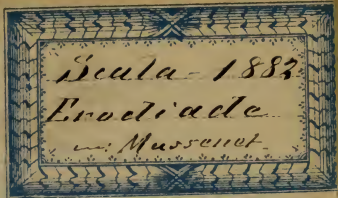 Scala - 1882
Erodiade
m: Massenet.